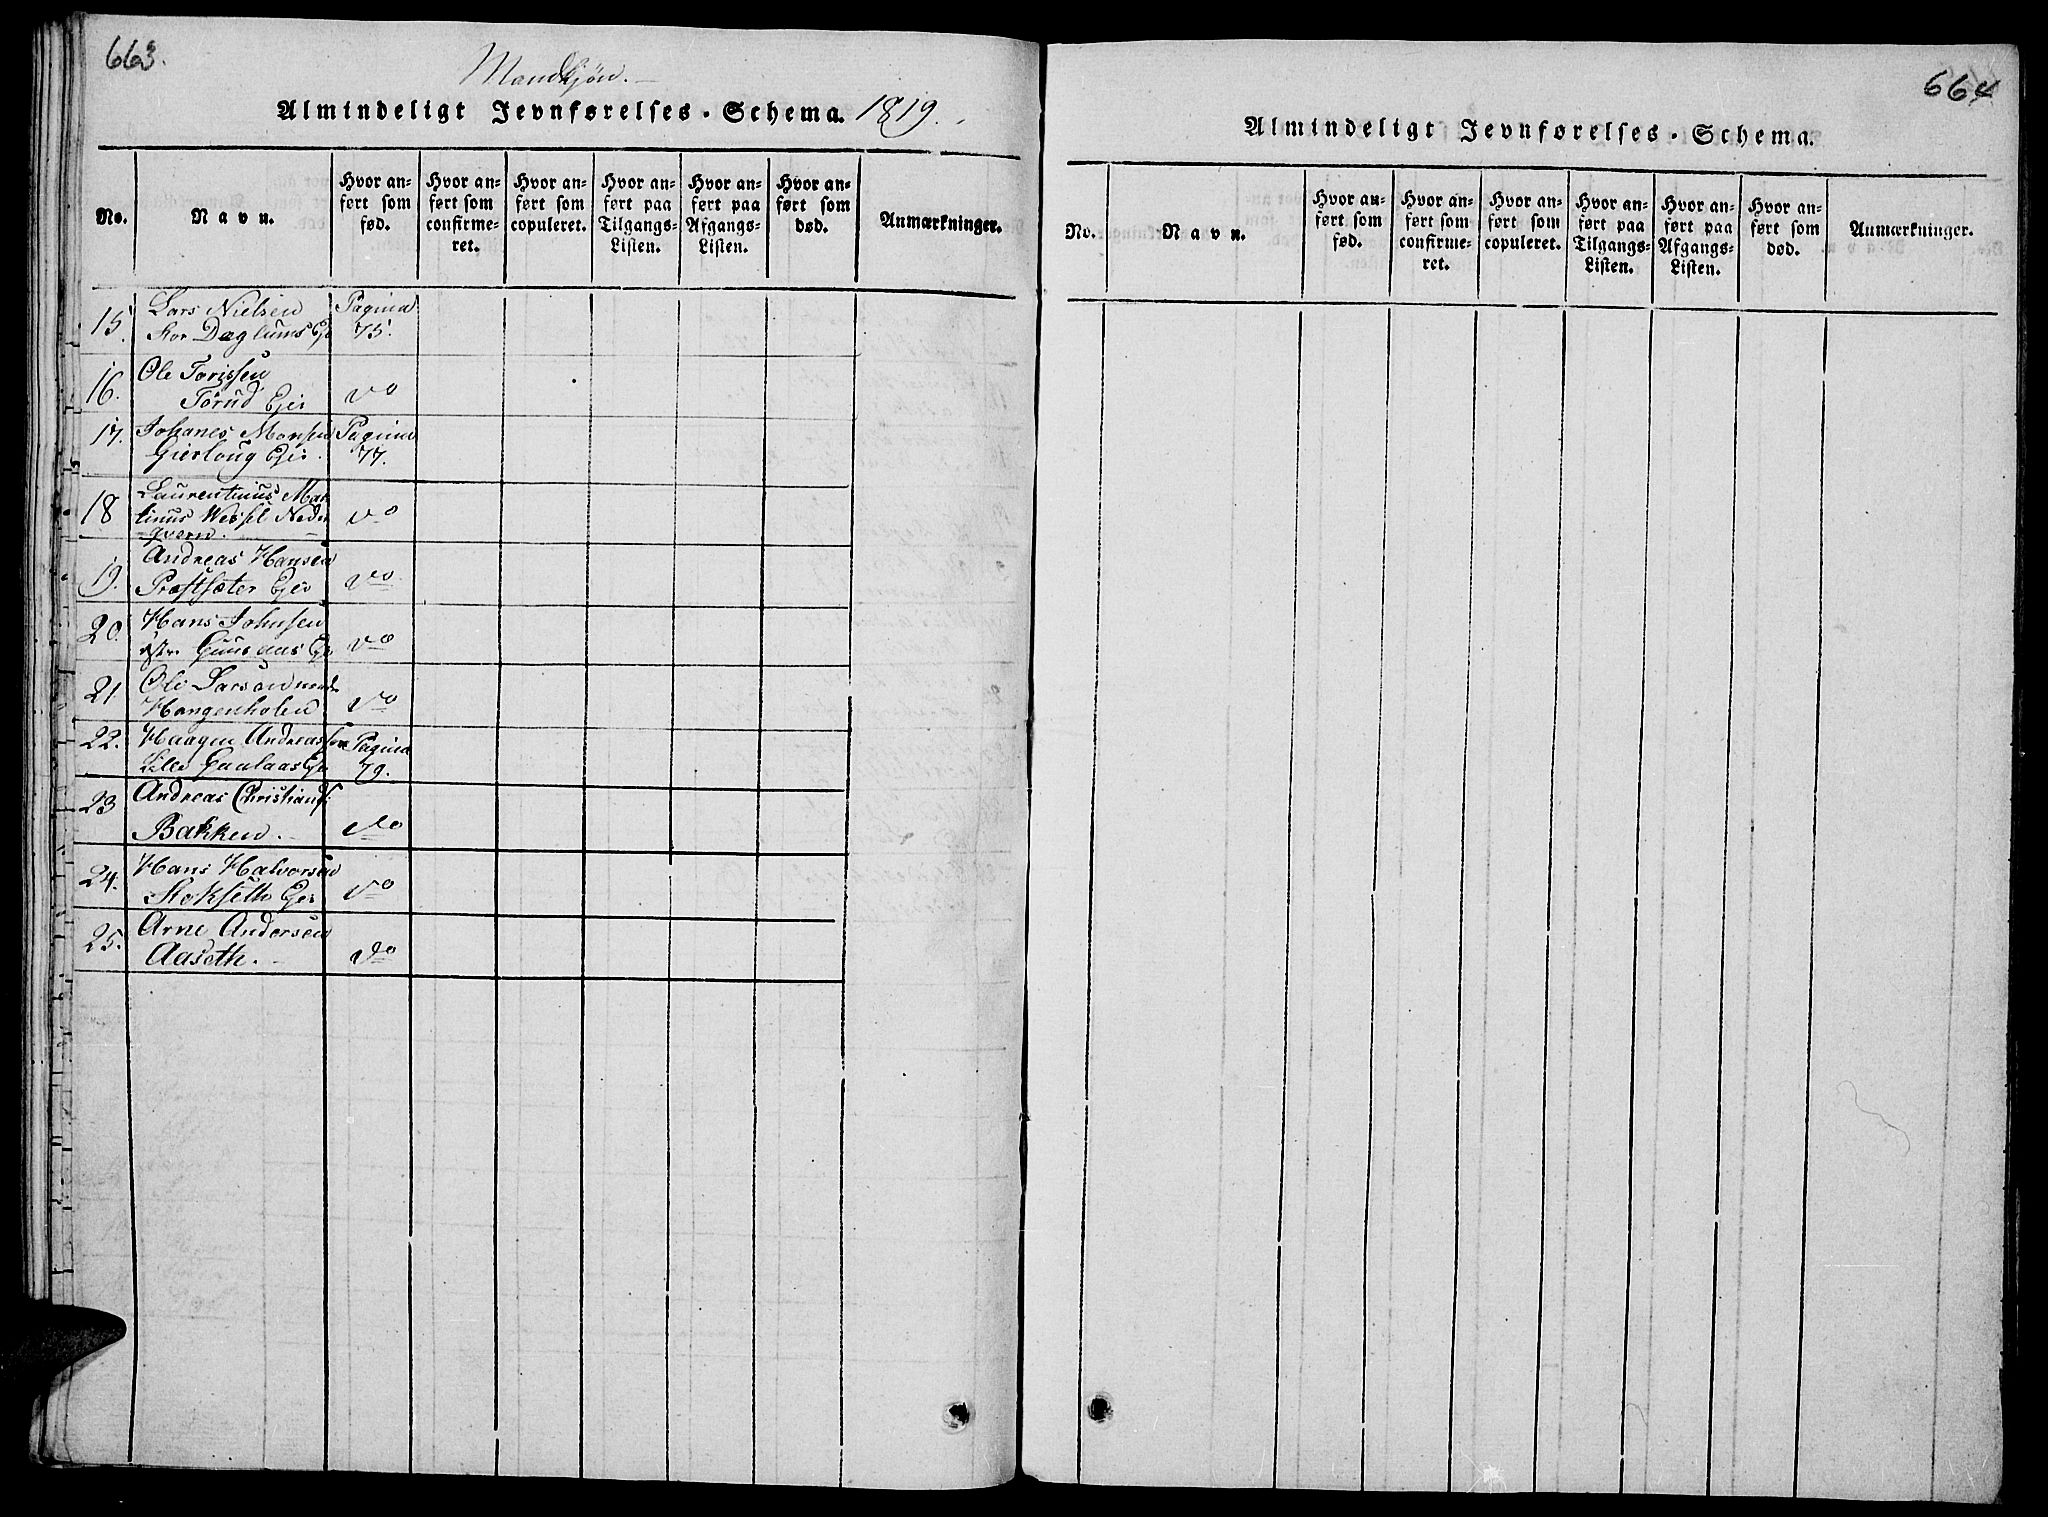 663.
Mandkjøn.
Almindeligt Jevnførelses-Schema. 1819.
No.
Navn.
Hvor anført som fød.
Hvor anført som confirmeret.
Hvor anført som copuleret.
Hvor anført paa Tilgangs-Listen.
Hvor anført paa Afgangs-Listen.
Hvor anført som død.
Anmærkninger.
15. Lars Nielsen Pagina
Stor Daglums Eje 75.
16. Ole Torissen
Törud Ejer do
17. Johanes Monsen Pagina
Gierloug Ejer. 77.
18 Laurentinus Mar
tinus Wessel Neder do
qvern.
19. Andreas Hansen
Præstsæter Ejer do
20. Hans Johnsen
Ejer do
21. Ole Larsen
Hangenholen do
22. Haagen Andreassen Pagina
Lille Gaulaas Eje 79.
23 Andreas Christians:
Bakken. do
24. Hans Halvorsen
Stokseth Ejer do
25. Arne Andersen
Aaseth. do
664
Almindeligt Jevnførelses-Schema.
No.
Navn.
Hvor anført som fød.
Hvor anført som confirmeret.
Hvor anført som copuleret.
Hvor anført paa Tilgangs-Listen.
Hvor anført paa Afgangs-Listen.
Hvor anført som død.
Anmærkninger.